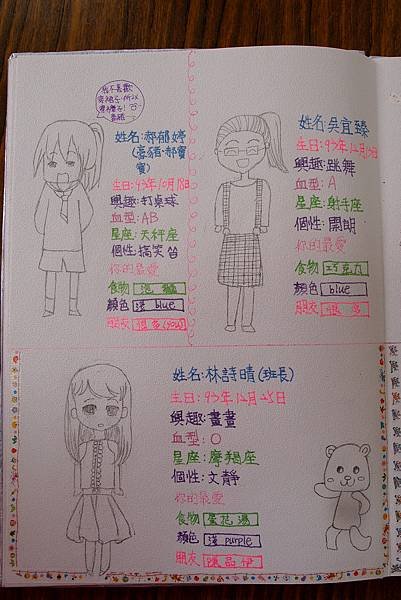 我不喜歡
穿裙子,所以
姓名:郝郁婷
生日:93年10月18日
興趣:打桌球
血型:AB
星座:天秤座
個性:搞笑
你的最愛
食物
顏色 淺 blue
朋友 很多(you)
姓名:吳宜臻
生日:93年12月
興趣:跳舞
血型:A
星座:射手座
個性:開朗
你的最愛
食物 巧克力
顏色 blue
朋友 很多
姓名:林詩晴(班長)
生日:93年12月25日
興趣:畫畫
血型:O
星座:摩羯座
個性:文靜
你的最愛
食物 蛋花湯
顏色 淺 purple
朋友 陳品伊